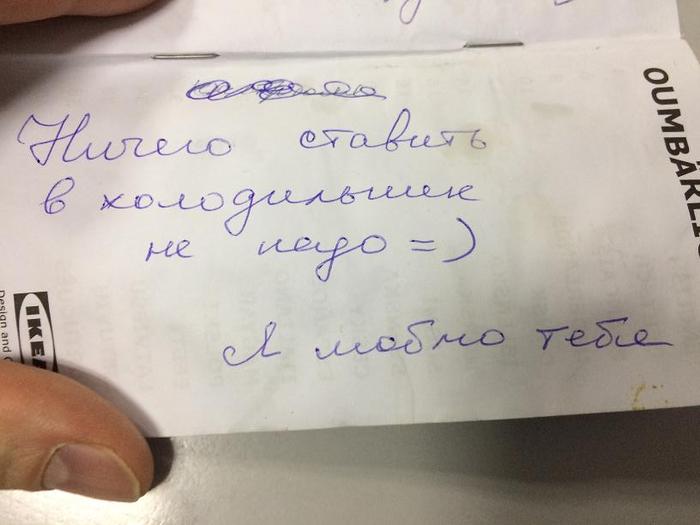 Ничего ставить
в холодильник
не надо =)
Я люблю тебя
OUMBÄRLI
IKE
Design and